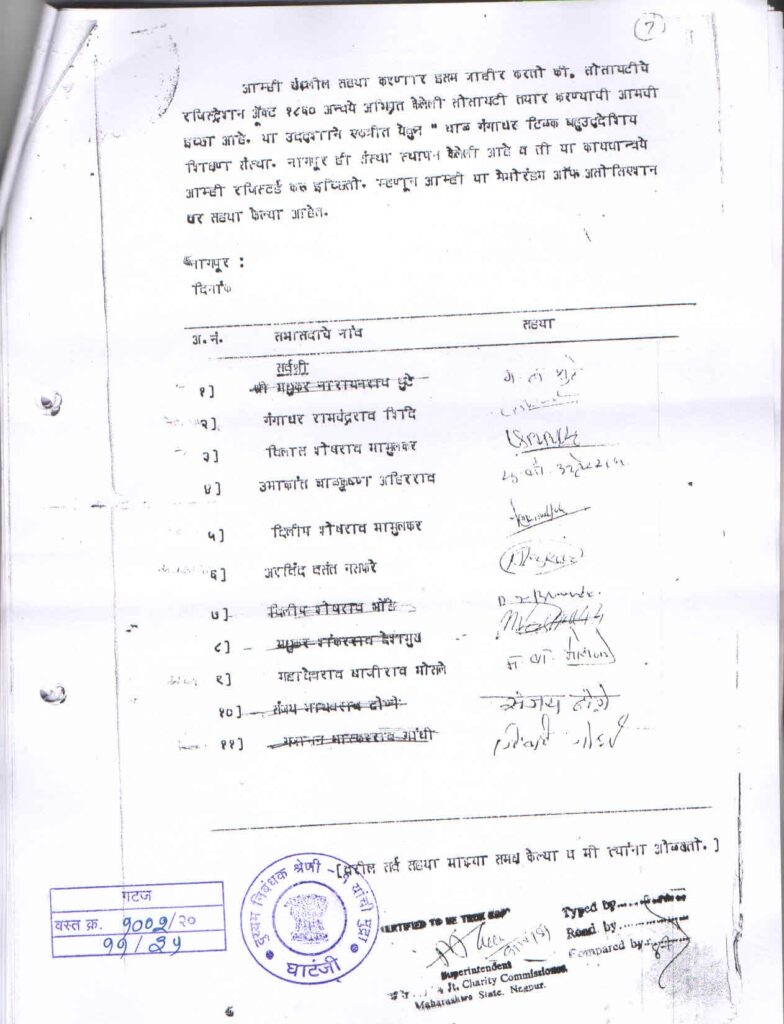 ७
आम्ही खालील सहया करणार इसम जाहीर करतो की, सोसायटीचे
रजिस्ट्रेशन ॲक्ट १८६० अन्वये अभिप्रत केलेली सोसायटी तयार करण्याची आमची
इच्छा आहे. या उद्देशाने एकत्रीत येवून " बाळ गंगाधर टिळक बहुउद्देशिय
शिक्षण संस्था. नागपूर ही संस्था स्थापन केलेली आहे व ती या कायद्यान्वये
आम्ही रजिस्टर्ड करू इच्छितो. म्हणून आम्ही या मेमोरंडम ऑफ असोसिएशन
वर सहया केल्या आहेत.
नागपूर :
दिनांक
अ.नं. सभासदाचे नांव सहया
सर्वश्री
१] श्री मधुकर नारायणराव घुटे
२] गंगाधर रामचंद्रराव शिंदे
३] विलास शेषराव मामुलकर
४] उमाकांत बाळकृष्ण अहिरराव
५] दिलीप शेषराव मामुलकर
६] अरविंद वसंत नासकरे
७] दिलीप शेषराव भोंडे
८] मधुकर शंकरराव देशमुख
९] महादेवराव बाजीराव भोसले
१०] संजय माधवराव ढोणे संजय ढोणे
११] गजानन भास्करराव गांधी
[वरील सर्व सहया माझ्या समक्ष केल्या व मी त्यांना ओळखतो. ]
गटज
वस्त क्र. १००१/२०
११/२५
दुय्यम निबंधक श्रेणी -१ यांची मुद्रा
घाटंजी
CERTIFIED TO BE TRUE COPY
Superintendent
Jt. Charity Commissioner
Maharashtra State. Nagpur.
Typed by
Read by
Compared by